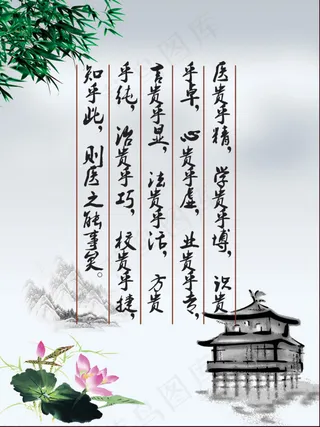 医贵乎精，学贵乎博，识贵
乎卓，心贵乎虚，业贵乎专，
言贵乎显，法贵乎活，方贵
乎纯，治贵乎巧，效贵乎捷，
知乎此，则医之能事矣。